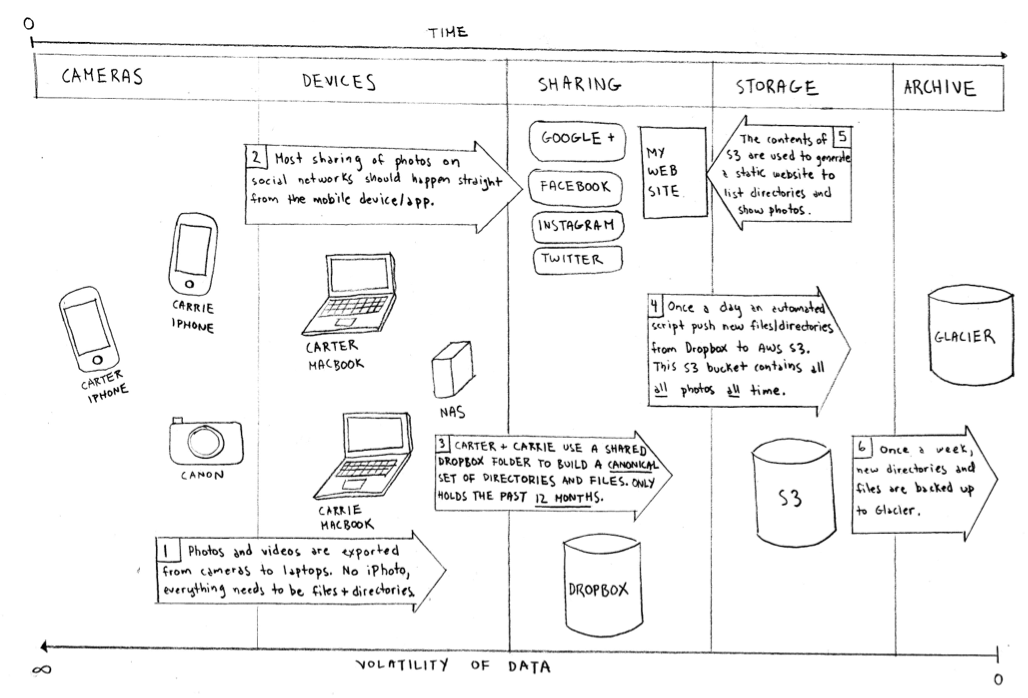 0
TIME
CAMERAS
DEVICES
SHARING
STORAGE
ARCHIVE
2 Most sharing of photos on
social networks should happen straight
from the mobile device/app.
GOOGLE +
FACEBOOK
INSTAGRAM
TWITTER
MY
WEB
SITE
The contents of 5
S3 are used to generate
a static website to
list directories and
show photos.
CARRIE
IPHONE
CARTER
IPHONE
CARTER
MACBOOK
NAS
4 Once a day an automated
script push new files/directories
from Dropbox to AWS S3.
This S3 bucket contains all
all photos all time.
GLACIER
CANON
CARRIE
MACBOOK
3 CARTER + CARRIE USE A SHARED
DROPBOX FOLDER TO BUILD A CANONICAL
SET OF DIRECTORIES AND FILES. ONLY
HOLDS THE PAST 12 MONTHS.
S3
6 Once a week,
new directories and
files are backed up
to Glacier.
1 Photos and videos are exported
from cameras to laptops. No iPhoto,
everything needs to be files + directories.
DROPBOX
∞
VOLATILITY OF DATA
0